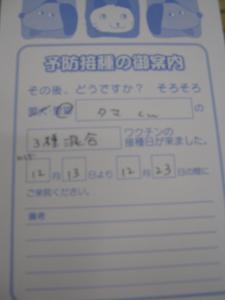 予防接種の御案内
その後、どうですか? そろそろ
タマ くんの
3種混合 ワクチンの
接種日が来ました。
12月13日より12月23日の間に
ご来院ください。
備考